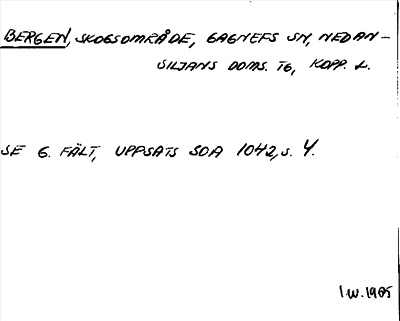 BERGEN, SKOGSOMRÅDE, GAGNEFS SN, NEDAN-
SILJANS DOMS. TG, KOPP. L.
SE G. FÄLT, UPPSATS SOA 1042, S. 4.
I.W. 1985